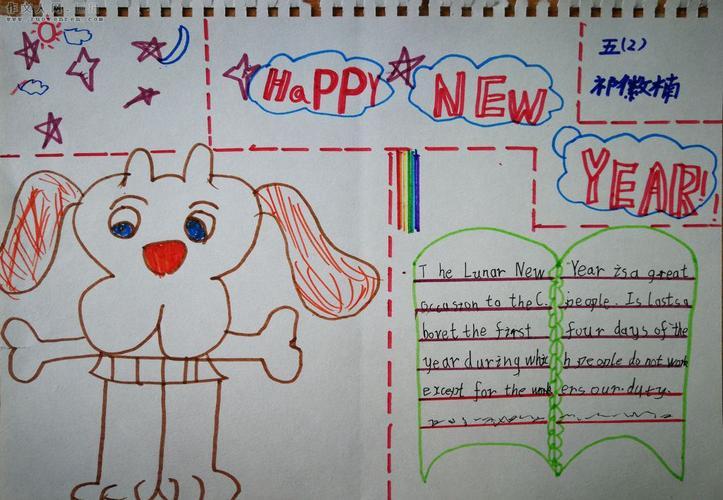 作文人网
www.zuowenren.com
HaPPY NEW
YEAR!
五(2)
The Lunar New Year is a great
occasion to the C. people. Is lasts a
boret the first four days of the
year during which people do not work
except for the workers our.duty